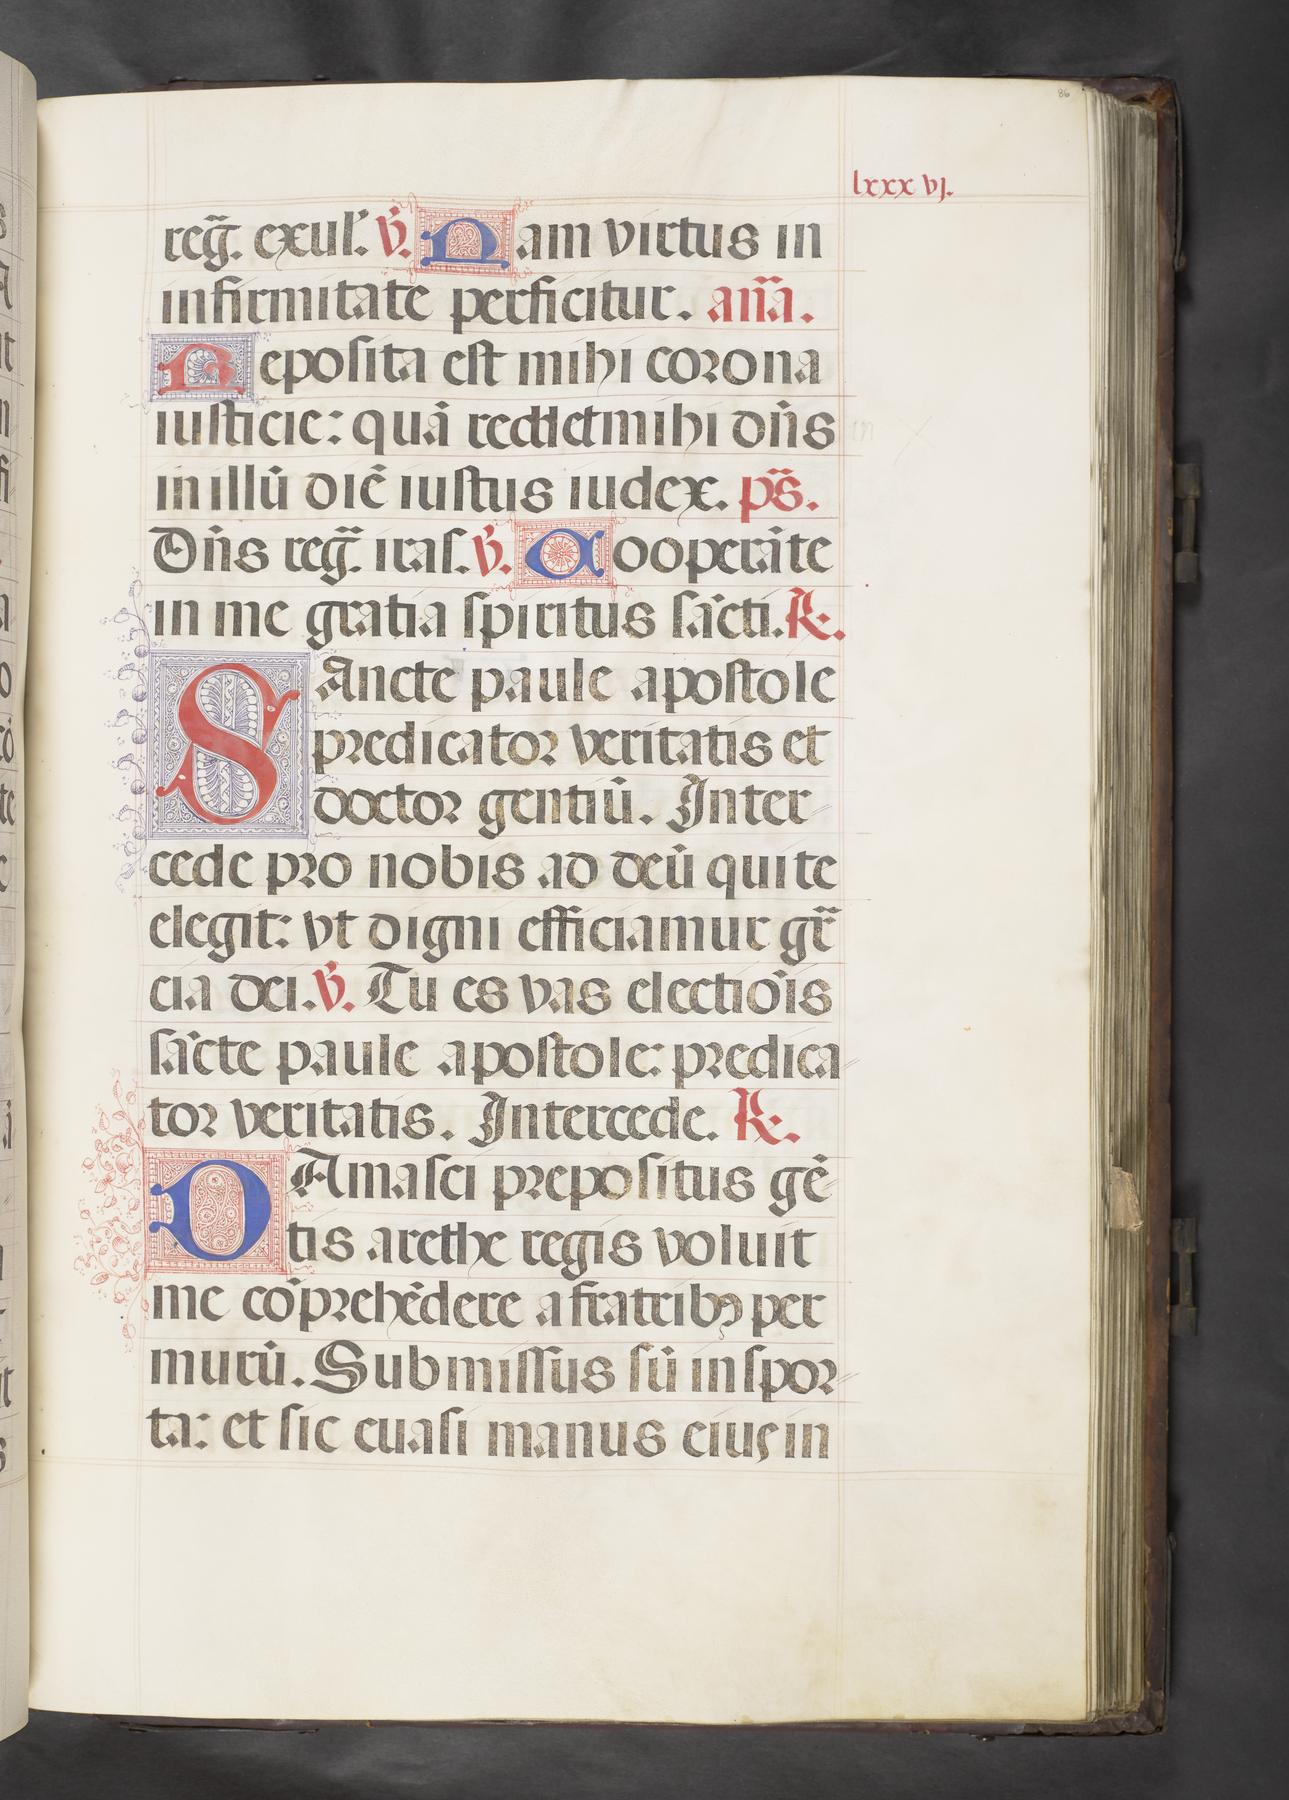 86
lxxxvj.
reg̃. exul̃. ℣. Nam virtus in
infirmitate perficitur. an̄a.
Reposita est mihi corona
iusticie: quā reddet mihi dn̄s
in illū diē iustus iudex. ps̄.
Dn̄s reg̃. iras. ℣. Cooperāte
in me gratia spiritus sācti. ℟.
SAncte paule apostole
predicator veritatis et
doctor gentiū. Inter-
cede pro nobis ad deū qui te
elegit: vt digni efficiamur gr̄
cia dei. ℣. Tu es vas electiōis
sācte paule apostole: predica-
tor veritatis. Intercede. ℟.
DAmasci prepositus gē-
tis arethe regis voluit
me cōprehēdere a fratribꝰ per
murū. Submissus sū in spor-
ta: et sic euasi manus eius in